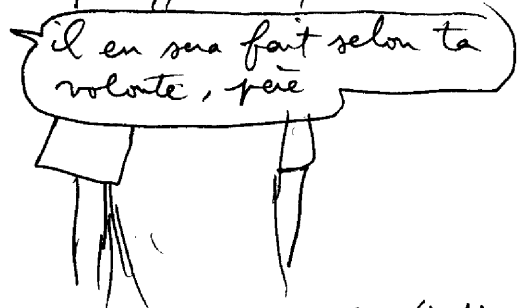 il en sera fait selon ta
volonté, père